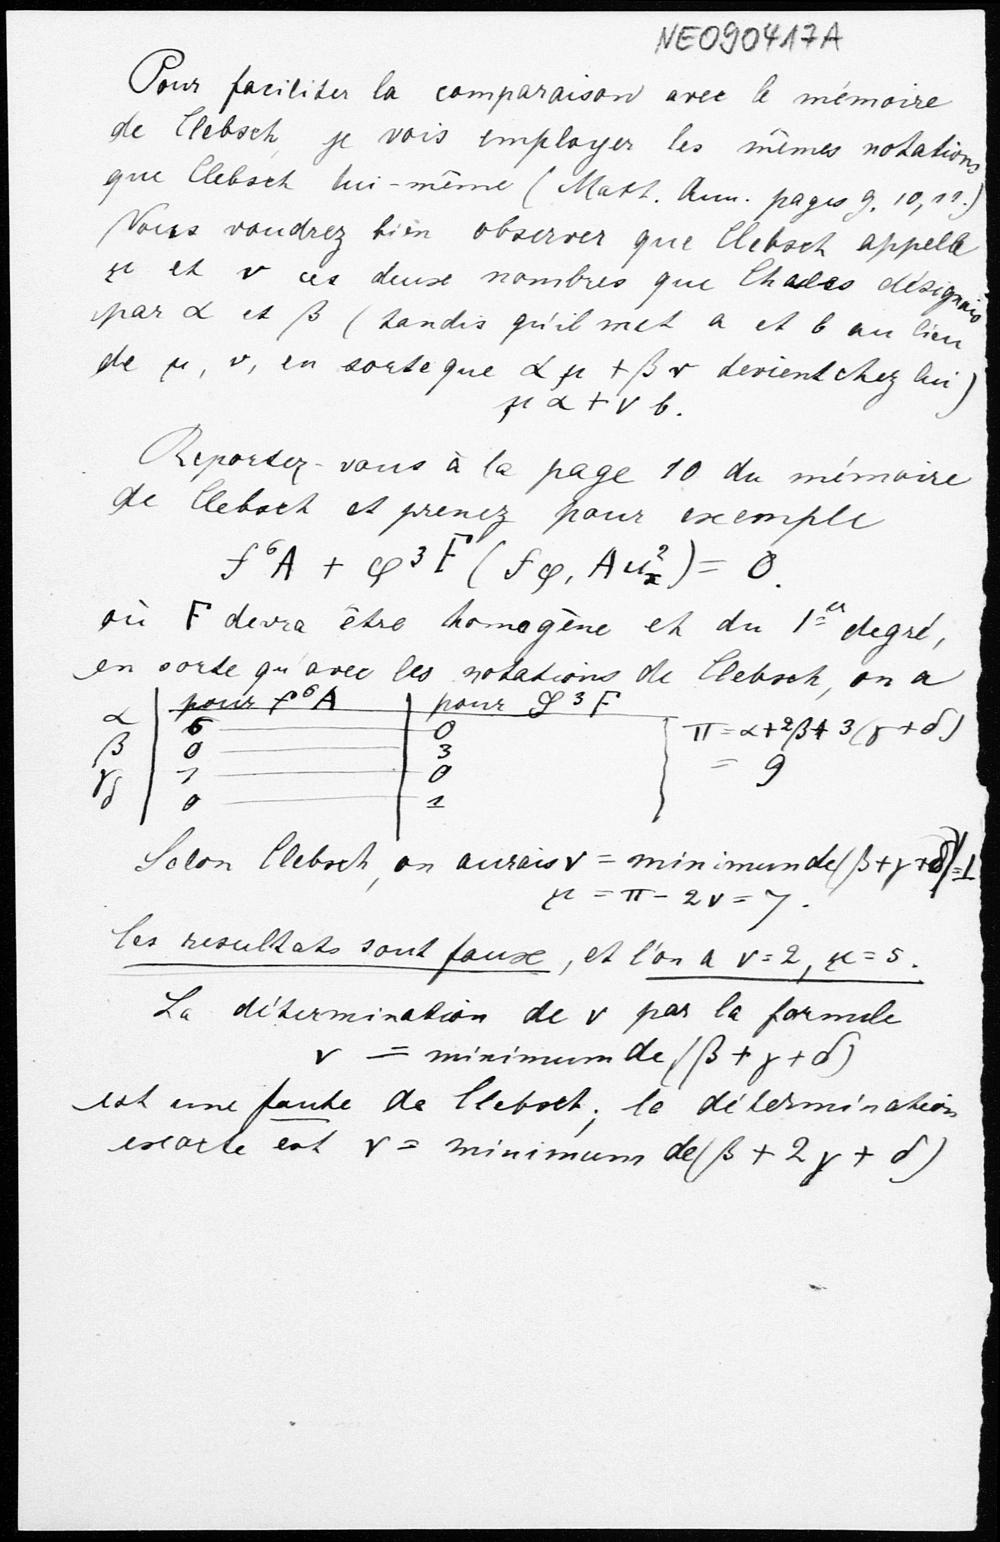 NE090417A
Pour faciliter la comparaison avec le mémoire
de Clebsch, je vais employer les mêmes notations
que Clebsch lui-même (Math. Ann. pages 9, 10, 11.)
Vous voudrez bien observer que Clebsch appelle
μ et ν ces deux nombres que Chasles désignait
par α et β (tandis qu'il met a et b au lieu
de μ, ν, en sorte que αμ + βν devient chez lui)
μα + νb.
Reportez-vous à la page 10 du mémoire
de Clebsch et prenez pour exemple
f⁶A + φ³F(fφ, Au²ₓ) = 0.
où F devra être homogène et du 1er degré,
en sorte qu'avec les notations de Clebsch, on a
pour f⁶A | pour φ³F
α | 6 — 0 | π = α+2β+3(γ+δ)
β | 0 — 3 | = 9
γ | 1 — 0
δ | 0 — 1
Selon Clebsch, on aurais ν = minimum de (β+γ+δ) = 1
μ = π - 2ν = 7.
les resultats sont faux, et l'on a ν=2, μ=5.
La détermination de ν par la formule
ν = minimum de (β+γ+δ)
est une faute de Clebsch; la détermination
exacte est ν = minimum de (β + 2γ + δ)